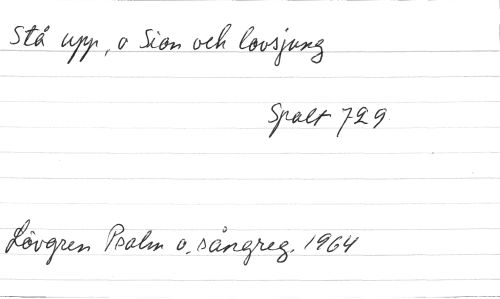 Stå upp, o Sion och lovsjung
Spalt 729
Lövgren Psalm o. sångreg. 1964